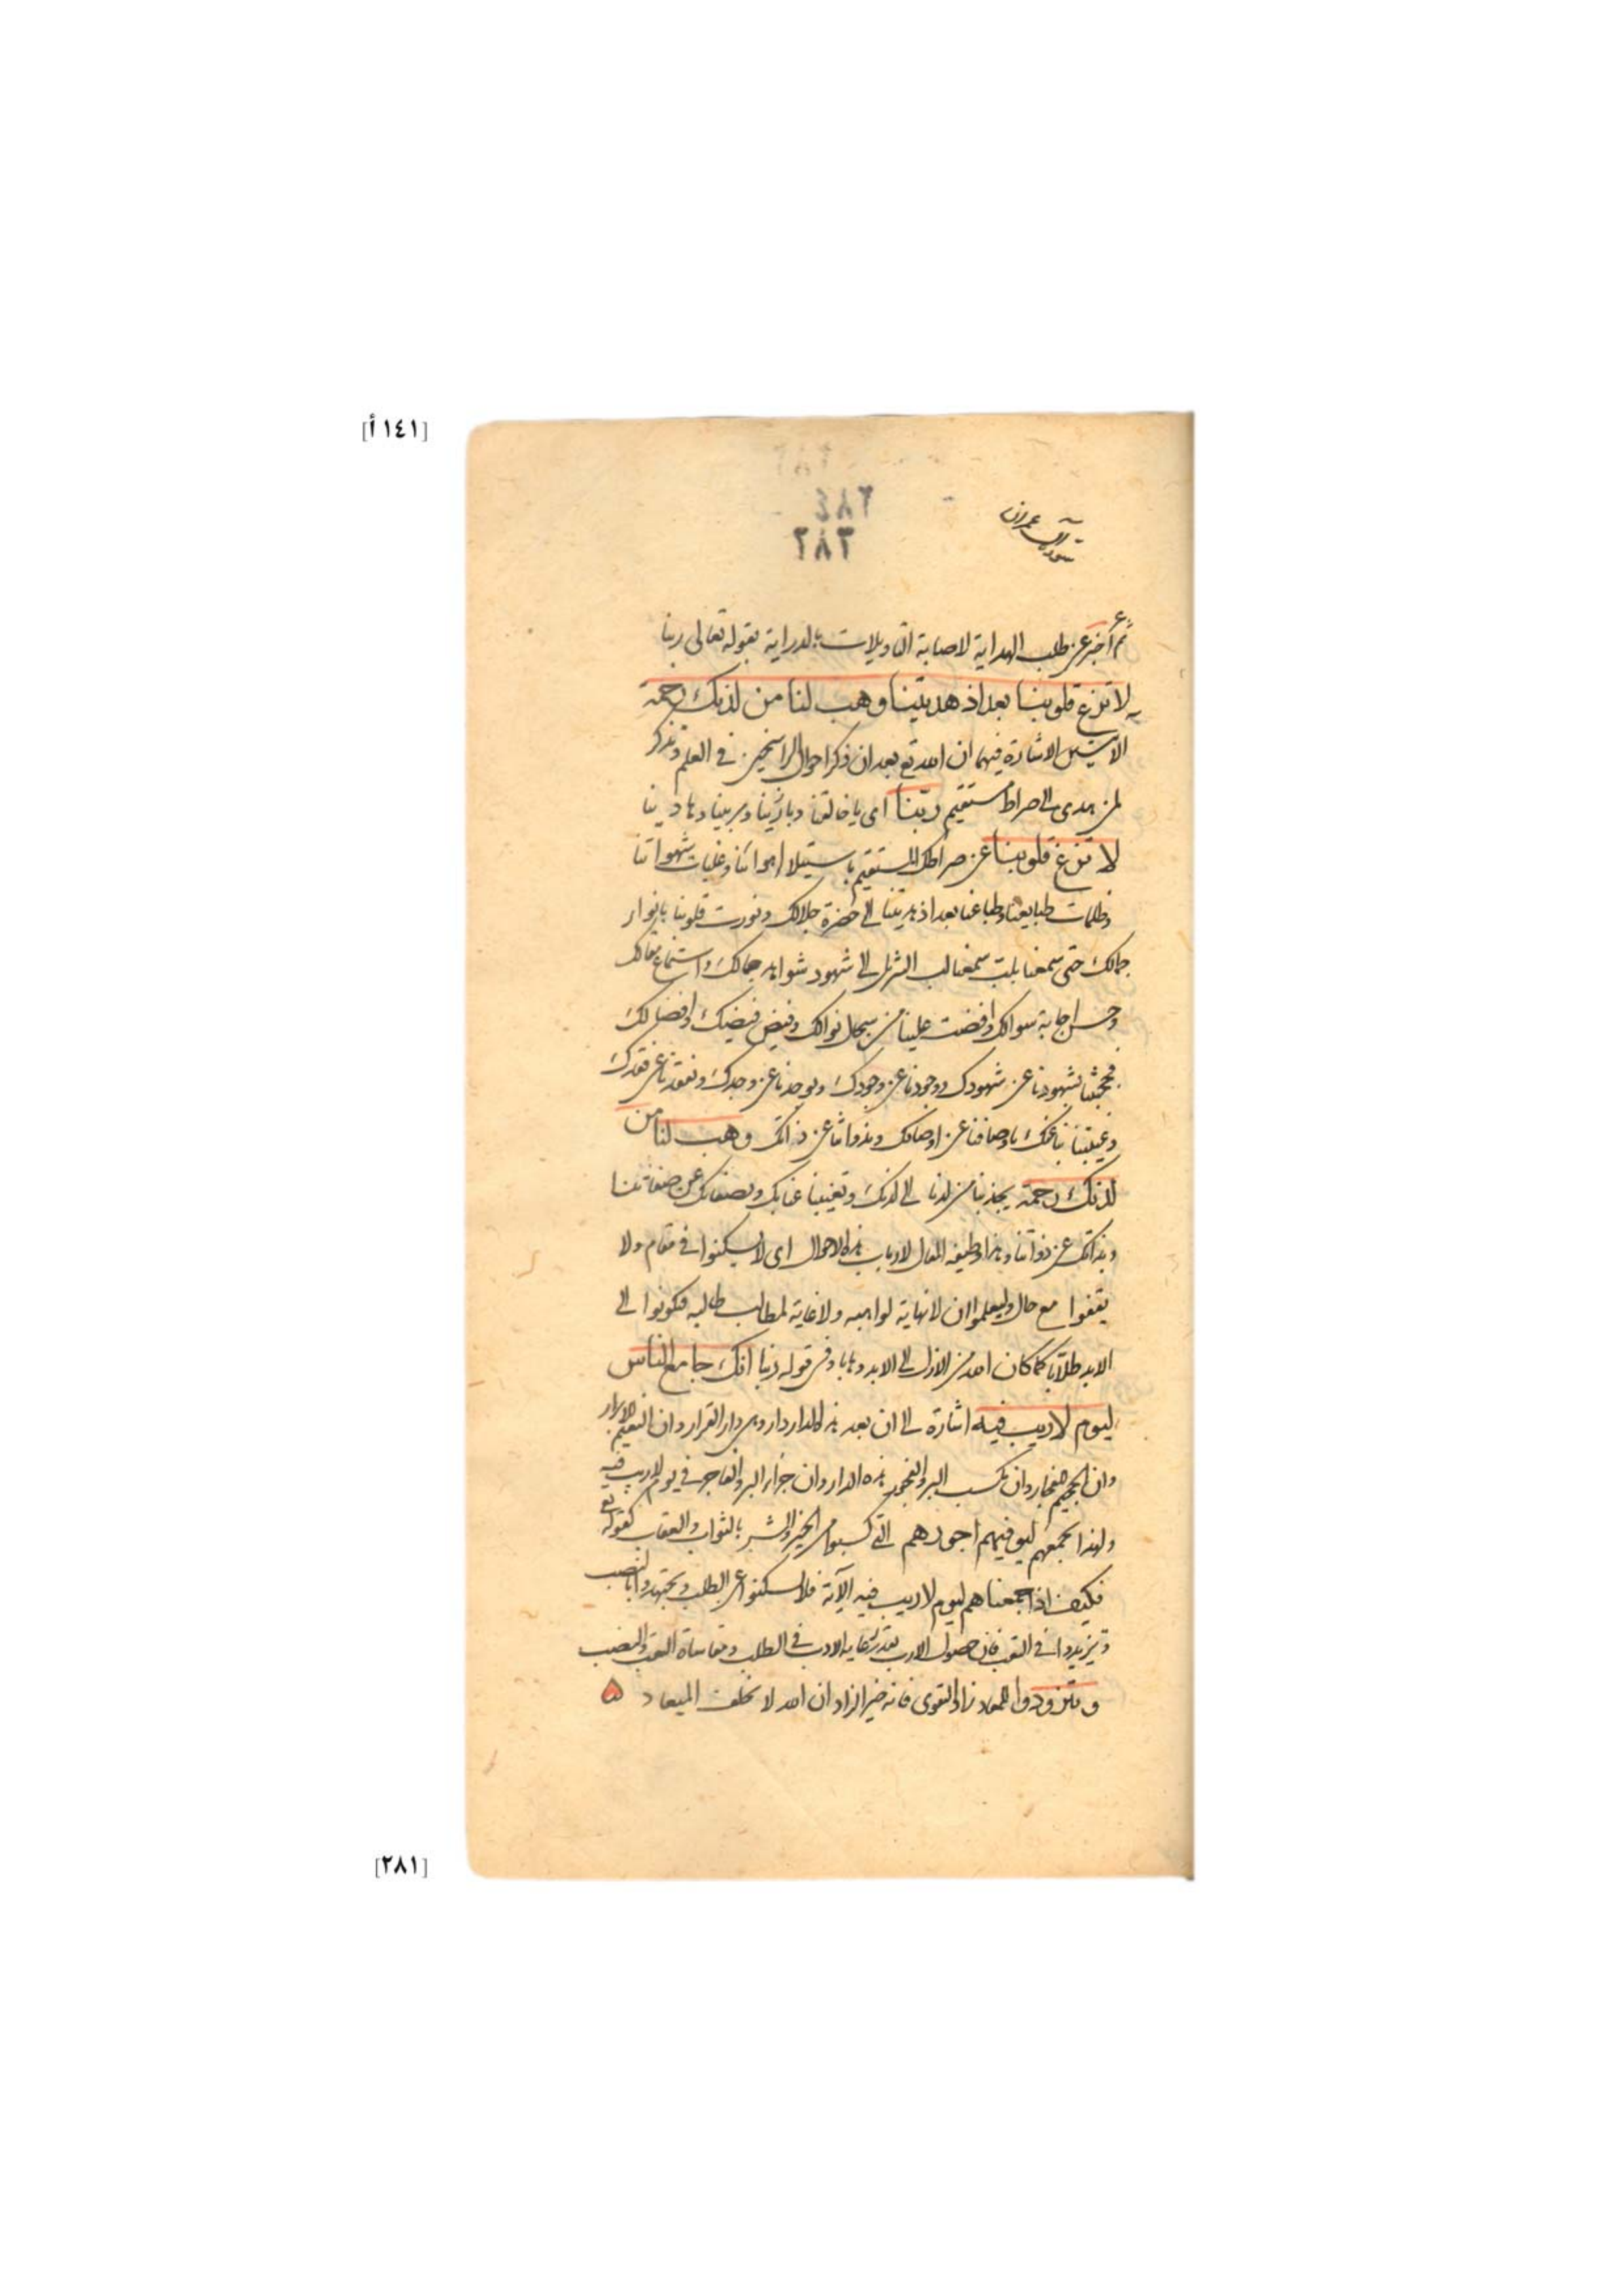 [١٤١ أ]
٢٨٤
٢٨٢
سورة آل عمران
ثم أخبر عن طلب الهداية لاصابة التاويلات بالدراية بقوله تعالى ربنا
لا تزغ قلوبنا بعد اذ هديتنا وهب لنا من لدنك رحمة
الايتين الاشارة فيهما ان الله تع بعد ان ذكر احوال الراسخين في العلم وتذكر
لمن هدى الى صراط مستقيم ربنا اى يا خالقنا وبارئنا ومربينا وهادينا
لا تزغ قلوبنا عن صراطك المستقيم باستيلا اهوائنا وغلبات شهواتنا
وظلمات طبايعنا وطباعنا بعد اذ هديتنا الى حضرة جلالك ونورت قلوبنا بانوار
جمالك حتى سمعنا بلب سمعنا لب الشرك الى شهود شواهد جمالك واستماع مقالك
وحسن اجابة سوالك وافضت علينا من سجال نوالك وفيض فيضك وافضالك
فحجبتنا بشهودنا عن شهودك ووجودنا عن وجودك وبوجدنا عن وجدك وبفقدنا عن فقدك
وغيبتنا بنا عنك باوصافنا عن اوصافك وبذواتنا عن ذاتك وهب لنا من
لدنك رحمة يجذبنا من لدنا الى لدنك وتغيبنا عنا بك وبصفاتك عن صفاتنا
وبذاتك عن ذواتنا وهذا وظيفة المقال لارباب هذه الاحوال اى لا يسكنوا في مقام ولا
يقفوا مع حال وليعلموا ان لا نهاية لمواهبه ولا غاية لمطالب طالبه فيكونوا الى
الابد طلابا كما كان الله من الازل الى الابد وهابا وفي قوله ربنا انك جامع الناس
ليوم لا ريب فيه اشارة الى ان بعد هذه الدار دار وهي دار القرار وان النعيم للابرار
وان الجحيم للفجار وان مكسب البر والفجور هذه الدار وان جزاء البر والفاجر في يوم لا ريب فيه
ولهذا يجمعهم ليوفيهم اجورهم التي كسبوا من الخير والشر بالثواب والعقاب كقوله تع
فكيف اذا جمعناهم ليوم لا ريب فيه الآية فلا يسكنوا عن الطلب ويجتهدوا بالنصب
ويزيدوا في التعب فان حصول الارب بقدر رعاية الادب في الطلب ومقاساة التعب والنصب
وتزودوا للمعاد زاد التقوى فانه خير الزاد ان الله لا يخلف الميعاد
[٢٨١]